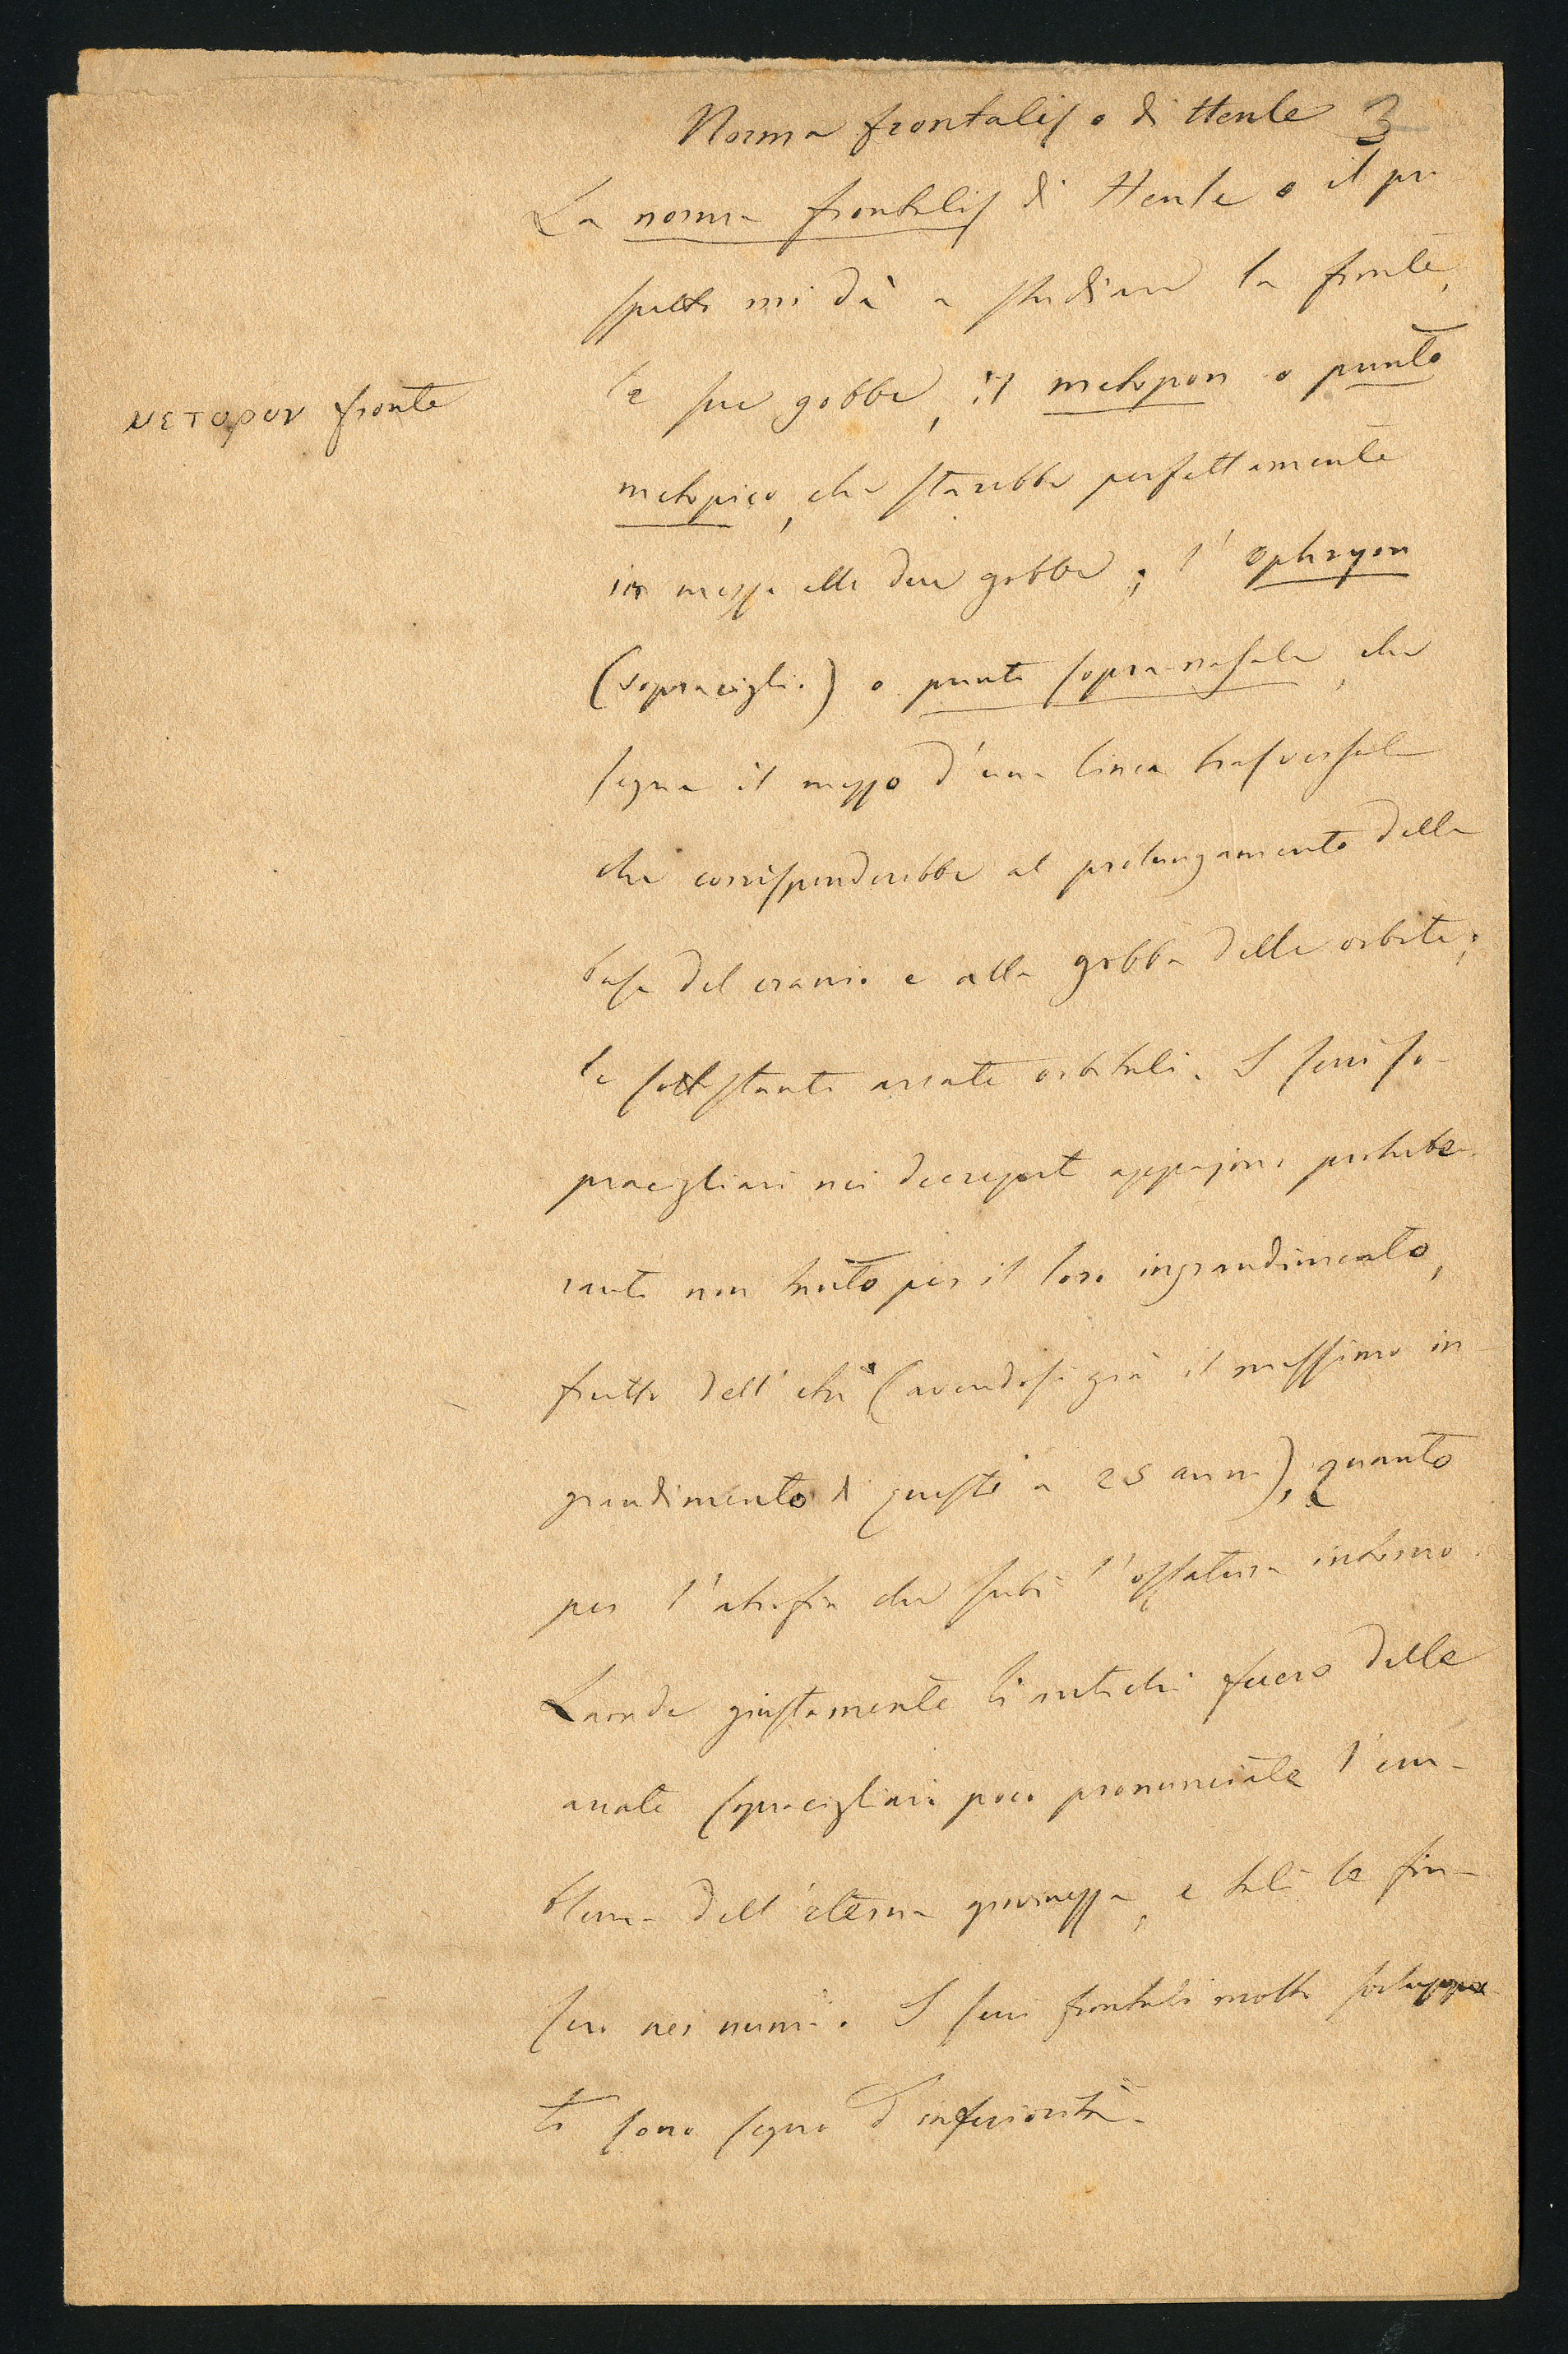 Norma frontalis o di Henle 3
La norma frontalis di Henle o il pro
spetto mi dà a studiare la fronte,
le sue gobbe, il metopon o punto
μετοpον fronte
metopico, che starebbe perfettamente
in mezzo alle due gobbe; l'ophryon
(sopraciglio) o punto sopra-nasale, che
segna il mezzo d'una linea trasversale
che corrisponderebbe al prolungamento della
base del cranio e alla gobba delle orbite;
le sottostanti arcate orbitali. I seni so-
pracigliari nei decrepiti appajono protube-
ranti non tanto per il loro ingrandimento,
frutto dell'età (avendosi già il massimo in-
grandimento di questi a 25 anni), quanto
per l'atrofia che subì l'ossatura intorno.
Laonde giustamente li antichi fecero delle
arcate sopracigliari poco pronunciate l'em-
blema dell'eterna giovinezza, e tali le fin-
sero nei numi. I seni frontali molto sviluppa
ti sono segno d'inferiorità.